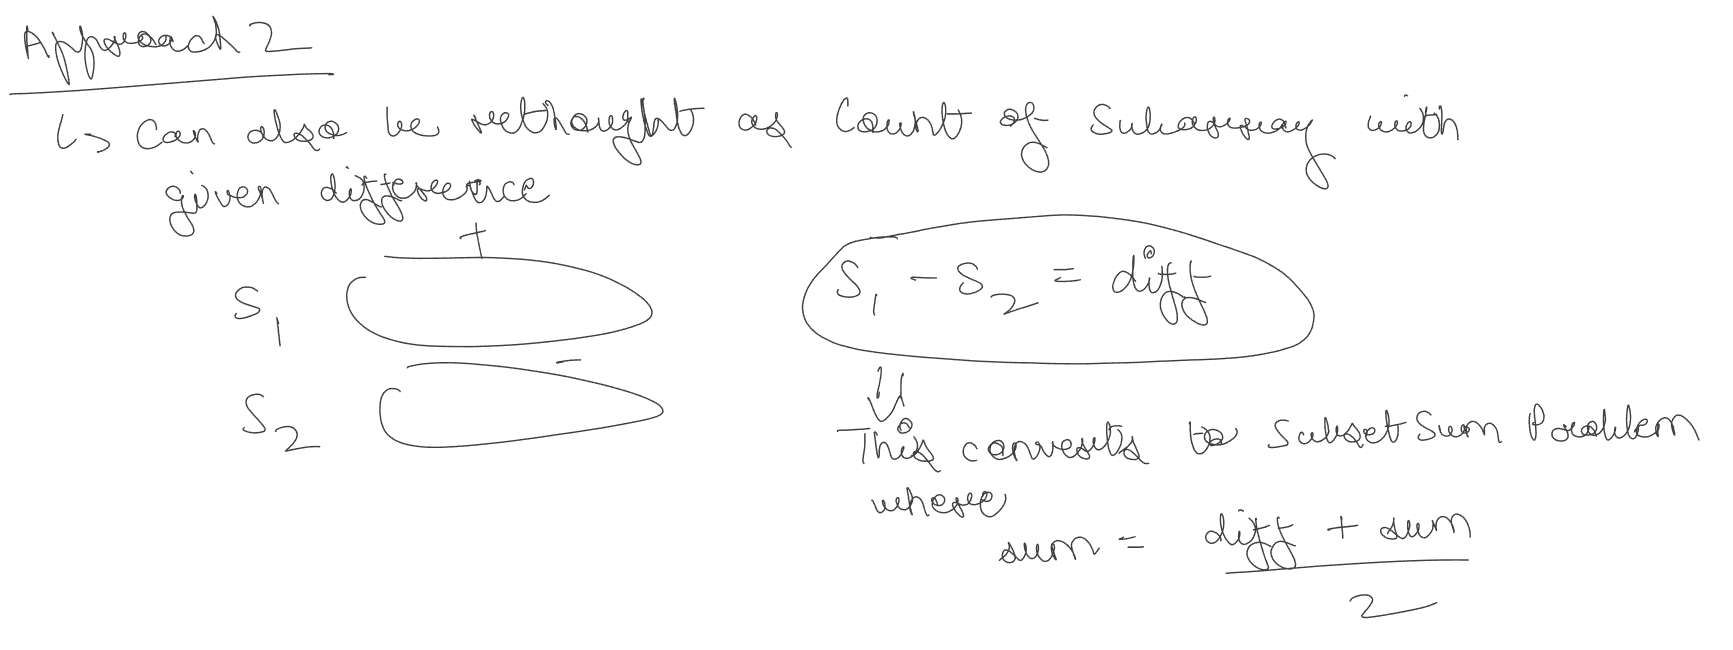 Approach 2
↳ Can also be rethought as Count of Subarray with
given difference
+
S₁
S₁ - S₂ = diff
-
S₂
⇓
This converts to Subset Sum Problem
where
sum = diff + sum
2